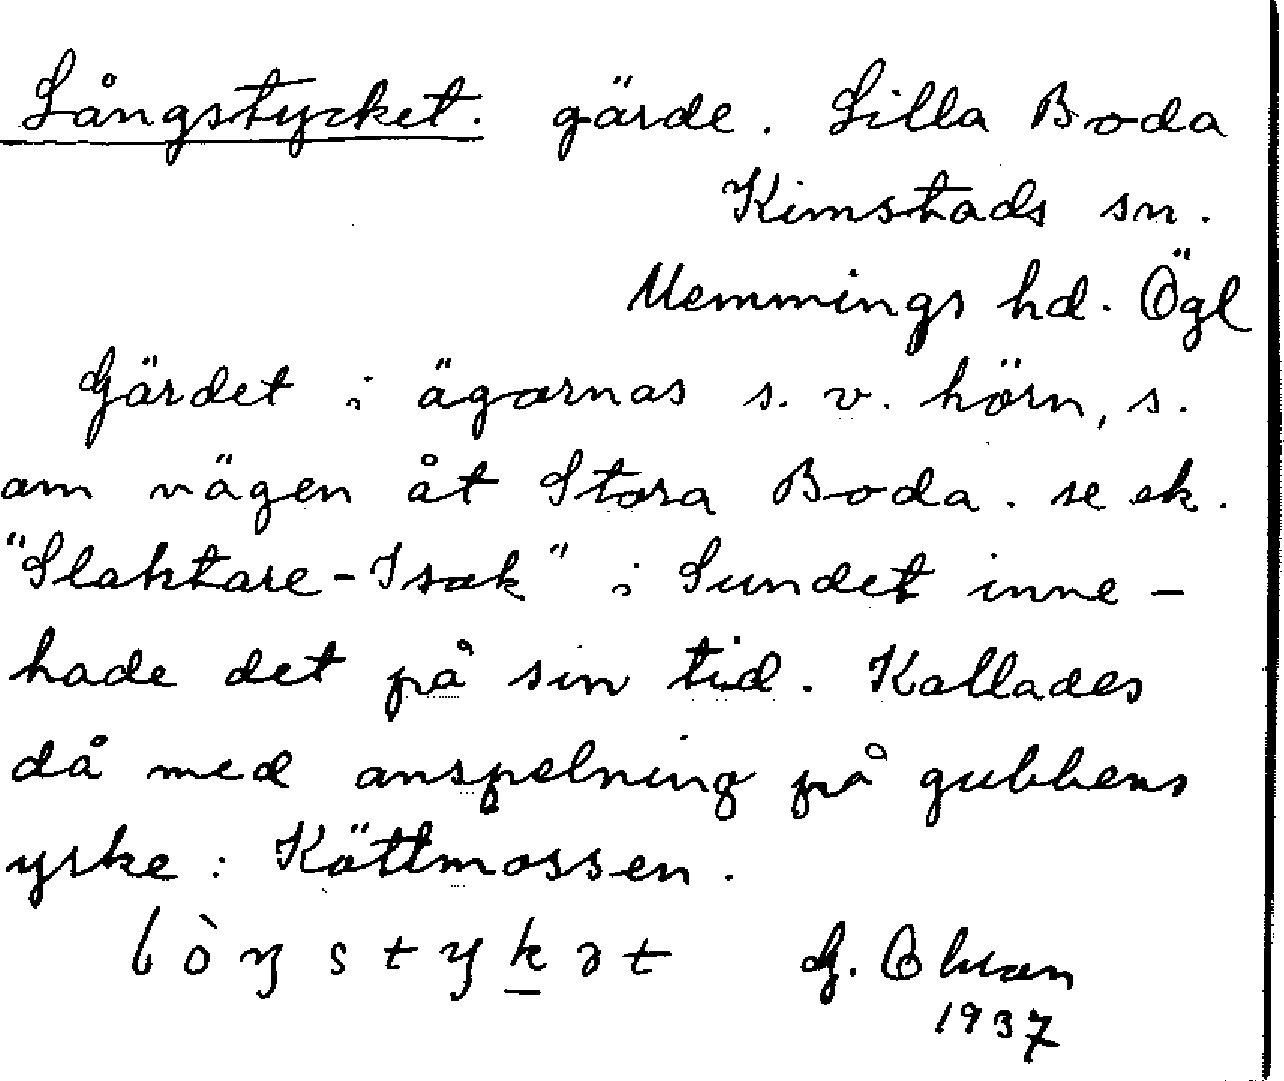 Långstycket. gärde. Lilla Boda
Kimstads sn.
Memmings hd. Ögl
Gärdet i ägornas s. v. hörn, s.
om vägen åt Stora Boda. se ek.
"Slaktare-Isak" i Sundet inne-
hade det på sin tid. Kallades
då med anspelning på gubbens
yrke: Köttmossen.
lòŋstykət G.
1937